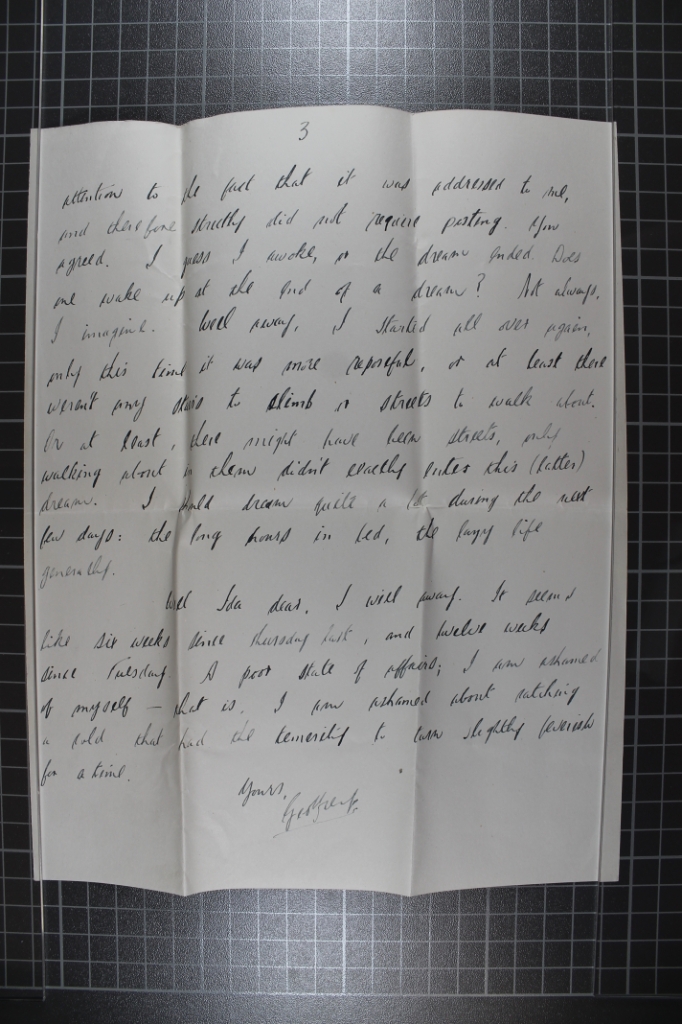 3
attention to the fact that it was addressed to me,
and therefore strictly did not require posting. You
agreed. I guess I awoke, or the dream ended. Does
one wake up at the end of a dream? Not always,
I imagine. Well away, I started all over again,
only this time it was more reposeful, or at least there
weren't any stairs to climb or streets to walk about.
Or at least, there might have been streets, only
walking about in them didn't exactly enter this (latter)
dream. I dream quite a lot during the next
few days: the long hours in bed, the lazy life
generally.
Well Ida dear, I will away. It seems
like six weeks since Thursday last, and twelve weeks
since Tuesday. A poor state of affairs; I am ashamed
of myself — that is, I am ashamed about catching
a cold that had the temerity to turn slightly feverish
for a time.
Yours,